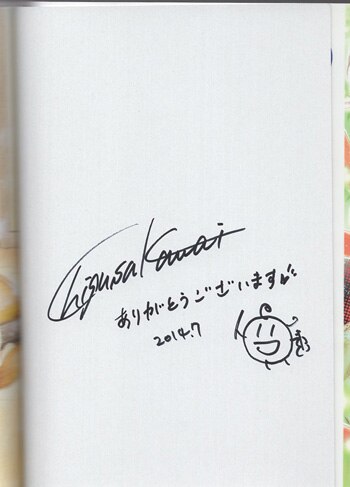 Chizusa Kawai
ありがとうございます
2014.7